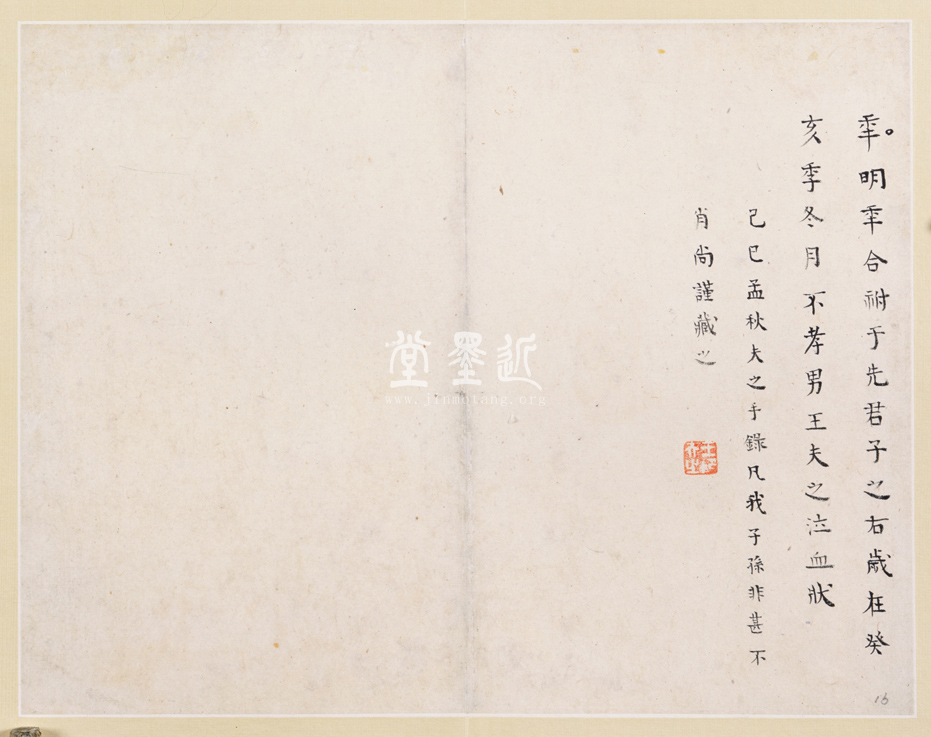 秊。明秊合祔于先君子之右歲在癸
亥季冬月不孝男王夫之泣血狀
己巳孟秋夫之手錄凡我子孫非甚不
肖尚謹藏之
近墨堂
www.jinmotang.org
16